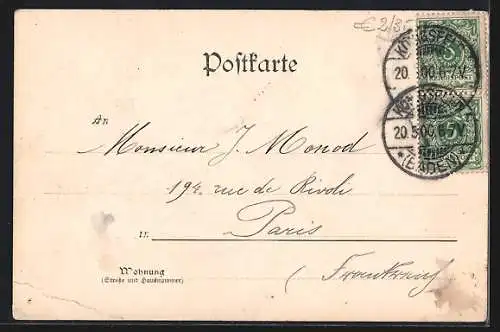 € 2/3.-
Postkarte
20.5.00.6-7V.
20.5.00.6-7V.
*(BADEN)*
An
Monsieur J. Monod
194 rue de Rivoli
in
Paris
Wohnung
(Straße und Hausnummer)
(Frankreich)